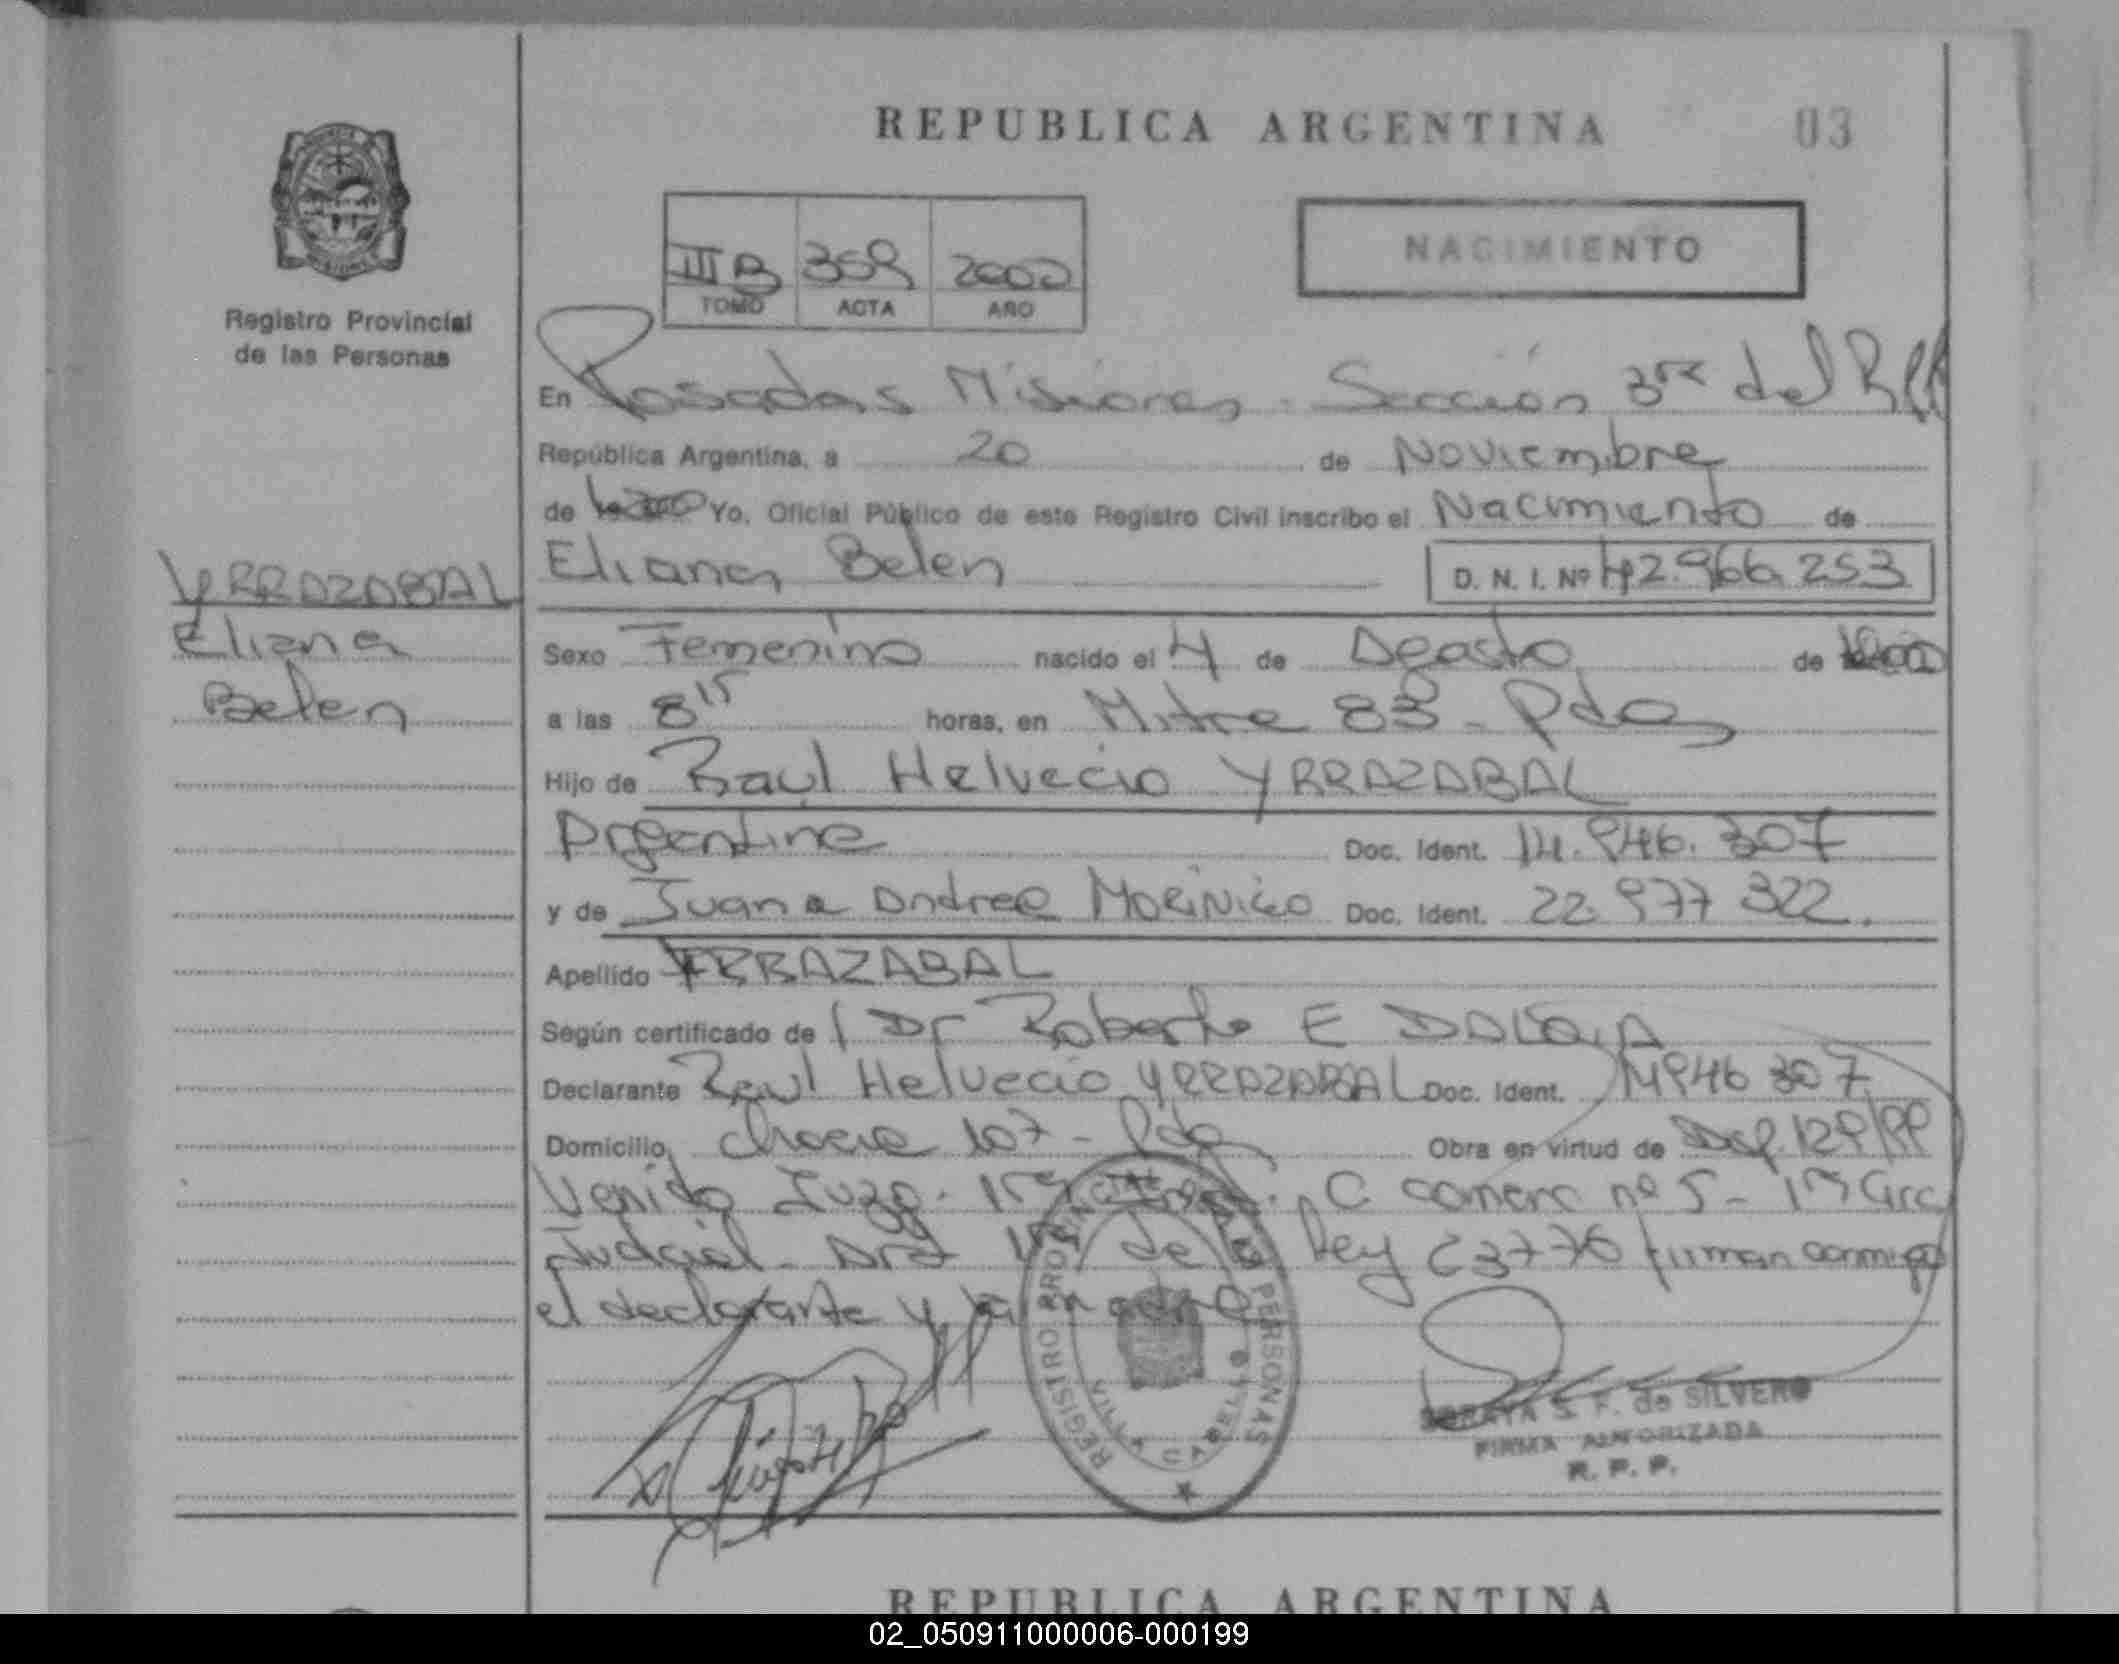 REPUBLICA ARGENTINA 03
III B 359 2000
TOMO ACTA AÑO
NACIMIENTO
Registro Provincial
de las Personas
En Posadas Misiones - Sección 3ra del
República Argentina, a 20 de Noviembre
de Yo, Oficial Público de este Registro Civil inscribo el Nacimiento de
Eliana Belen D. N. I. Nº 42.966.253
YRRAZABAL
Eliana
Belen
Sexo Femenino nacido el 4 de Agosto de
a las 8 15 horas, en Mitre 83 - Pdas
Hijo de Raul Helvecio YRRAZABAL
Argentino Doc. Ident. 14.946.307
y de Juana Andrea MORINIGO Doc. Ident. 22.977 322.
Apellido YRRAZABAL
Según certificado de Dr Roberto E
Declarante Raul Helvecio YRRAZABAL Doc. Ident. 14946 307
Domicilio 107 - Pdas Obra en virtud de 129/99
Venido Juzg. 1ra C comerc nº 5 - 1ra Circ
Judicial de Ley 23776 firman conmigo
el declarante y la madre
REGISTRO PROVINCIAL DE LAS PERSONAS
VILLA CABELLO
SORAYA S. F. de SILVERO
FIRMA AUTORIZADA
R. P. P.
REPUBLICA ARGENTINA
02_050911000006-000199